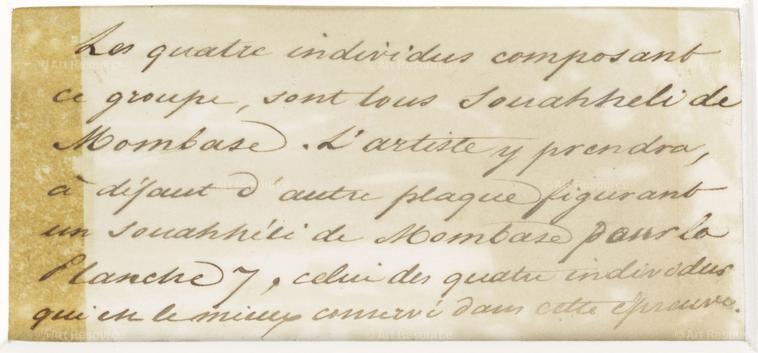 Les quatre individus composant
ce groupe, sont tous Souahheli de
Mombase. L'artiste y prendra,
à défaut d'autre plaque figurant
un Souahhéli de Mombase pour la
Planche 7, celui des quatre individus
qui est le mieux conservé dans cette épreuve.